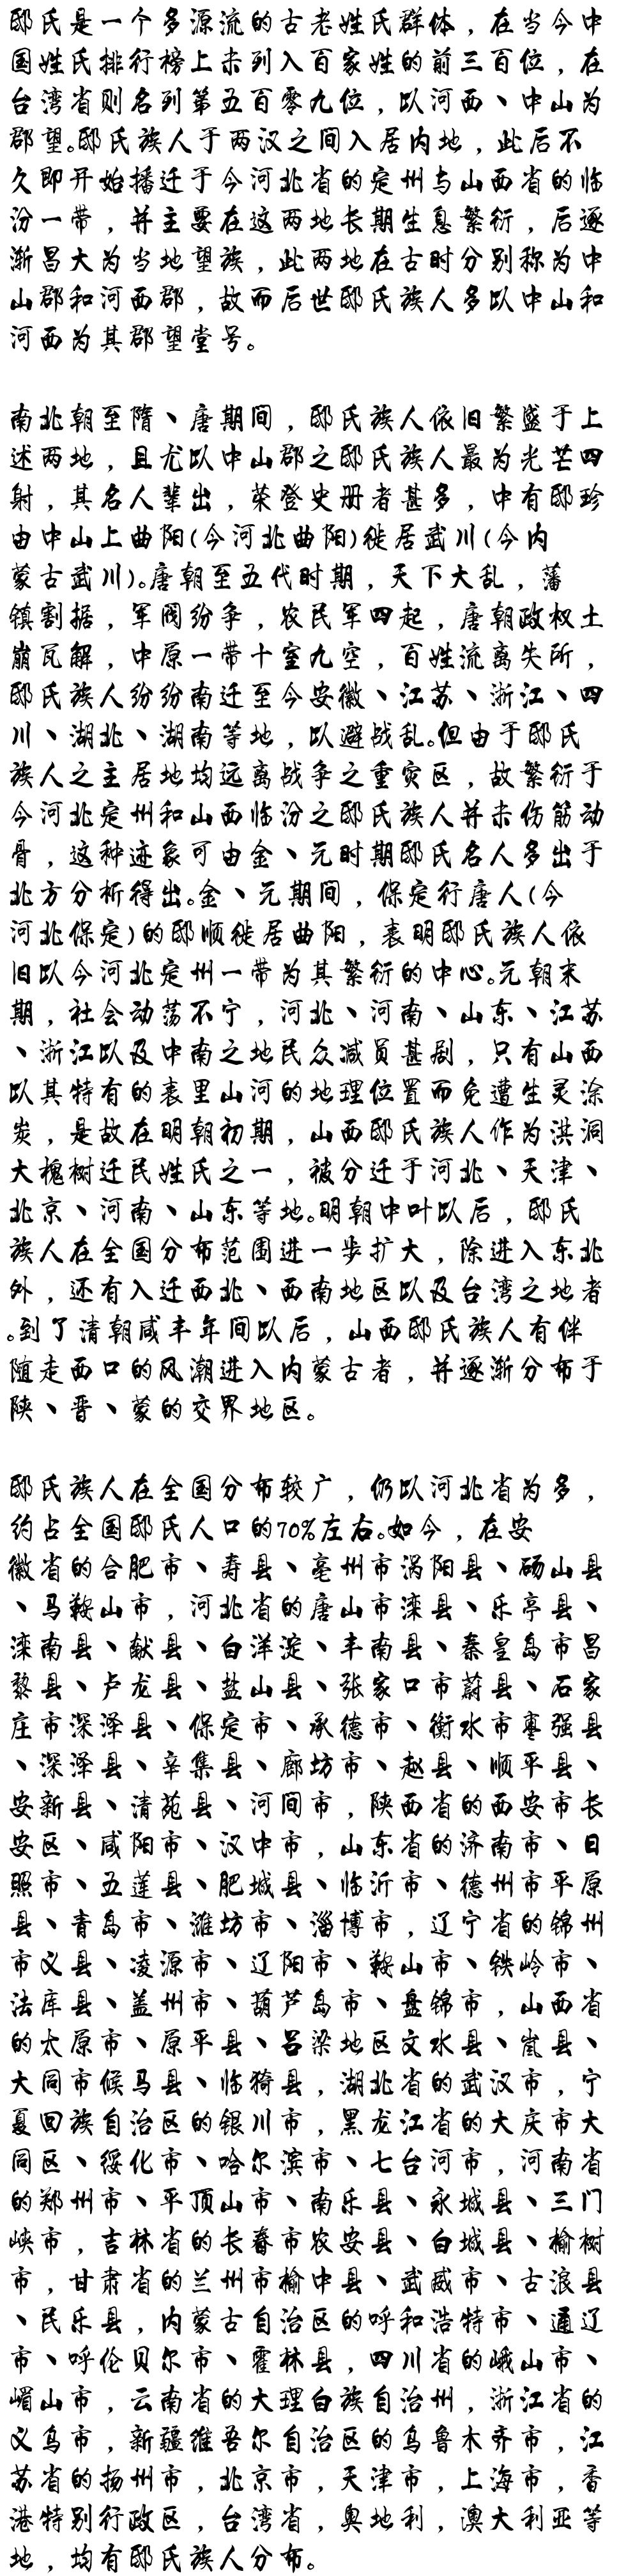 邸氏是一个多源流的古老姓氏群体，在当今中
国姓氏排行榜上未列入百家姓的前三百位，在
台湾省则名列第五百零九位，以河西、中山为
郡望。邸氏族人于两汉之间入居内地，此后不
久即开始播迁于今河北省的定州与山西省的临
汾一带，并主要在这两地长期生息繁衍，后逐
渐昌大为当地望族，此两地在古时分别称为中
山郡和河西郡，故而后世邸氏族人多以中山和
河西为其郡望堂号。
南北朝至隋、唐期间，邸氏族人依旧繁盛于上
述两地，且尤以中山郡之邸氏族人最为光芒四
射，其名人辈出，荣登史册者甚多，中有邸珍
由中山上曲阳(今河北曲阳)徙居武川(今内
蒙古武川)。唐朝至五代时期，天下大乱，藩
镇割据，军阀纷争，农民军四起，唐朝政权土
崩瓦解，中原一带十室九空，百姓流离失所，
邸氏族人纷纷南迁至今安徽、江苏、浙江、四
川、湖北、湖南等地，以避战乱。但由于邸氏
族人之主居地均远离战争之重灾区，故繁衍于
今河北定州和山西临汾之邸氏族人并未伤筋动
骨，这种迹象可由金、元时期邸氏名人多出于
北方分析得出。金、元期间，保定行唐人(今
河北保定)的邸顺徙居曲阳，表明邸氏族人依
旧以今河北定州一带为其繁衍的中心。元朝末
期，社会动荡不宁，河北、河南、山东、江苏
、浙江以及中南之地民众减员甚剧，只有山西
以其特有的表里山河的地理位置而免遭生灵涂
炭，是故在明朝初期，山西邸氏族人作为洪洞
大槐树迁民姓氏之一，被分迁于河北、天津、
北京、河南、山东等地。明朝中叶以后，邸氏
族人在全国分布范围进一步扩大，除进入东北
外，还有入迁西北、西南地区以及台湾之地者
。到了清朝咸丰年间以后，山西邸氏族人有伴
随走西口的风潮进入内蒙古者，并逐渐分布于
陕、晋、蒙的交界地区。
邸氏族人在全国分布较广，仍以河北省为多，
约占全国邸氏人口的70%左右。如今，在安
徽省的合肥市、寿县、亳州市涡阳县、砀山县
、马鞍山市，河北省的唐山市滦县、乐亭县、
滦南县、献县、白洋淀、丰南县、秦皇岛市昌
黎县、卢龙县、盐山县、张家口市蔚县、石家
庄市深泽县、保定市、承德市、衡水市枣强县
、深泽县、辛集县、廊坊市、赵县、顺平县、
安新县、清苑县、河间市，陕西省的西安市长
安区、咸阳市、汉中市，山东省的济南市、日
照市、五莲县、肥城县、临沂市、德州市平原
县、青岛市、潍坊市、淄博市，辽宁省的锦州
市义县、凌源市、辽阳市、鞍山市、铁岭市、
法库县、盖州市、葫芦岛市、盘锦市，山西省
的太原市、原平县、吕梁地区文水县、岚县、
大同市候马县、临猗县，湖北省的武汉市，宁
夏回族自治区的银川市，黑龙江省的大庆市大
同区、绥化市、哈尔滨市、七台河市，河南省
的郑州市、平顶山市、南乐县、永城县、三门
峡市，吉林省的长春市农安县、白城县、榆树
市，甘肃省的兰州市榆中县、武威市、古浪县
、民乐县，内蒙古自治区的呼和浩特市、通辽
市、呼伦贝尔市、霍林县，四川省的峨山市、
嵋山市，云南省的大理白族自治州，浙江省的
义乌市，新疆维吾尔自治区的乌鲁木齐市，江
苏省的扬州市，北京市，天津市，上海市，香
港特别行政区，台湾省，奥地利，澳大利亚等
地，均有邸氏族人分布。